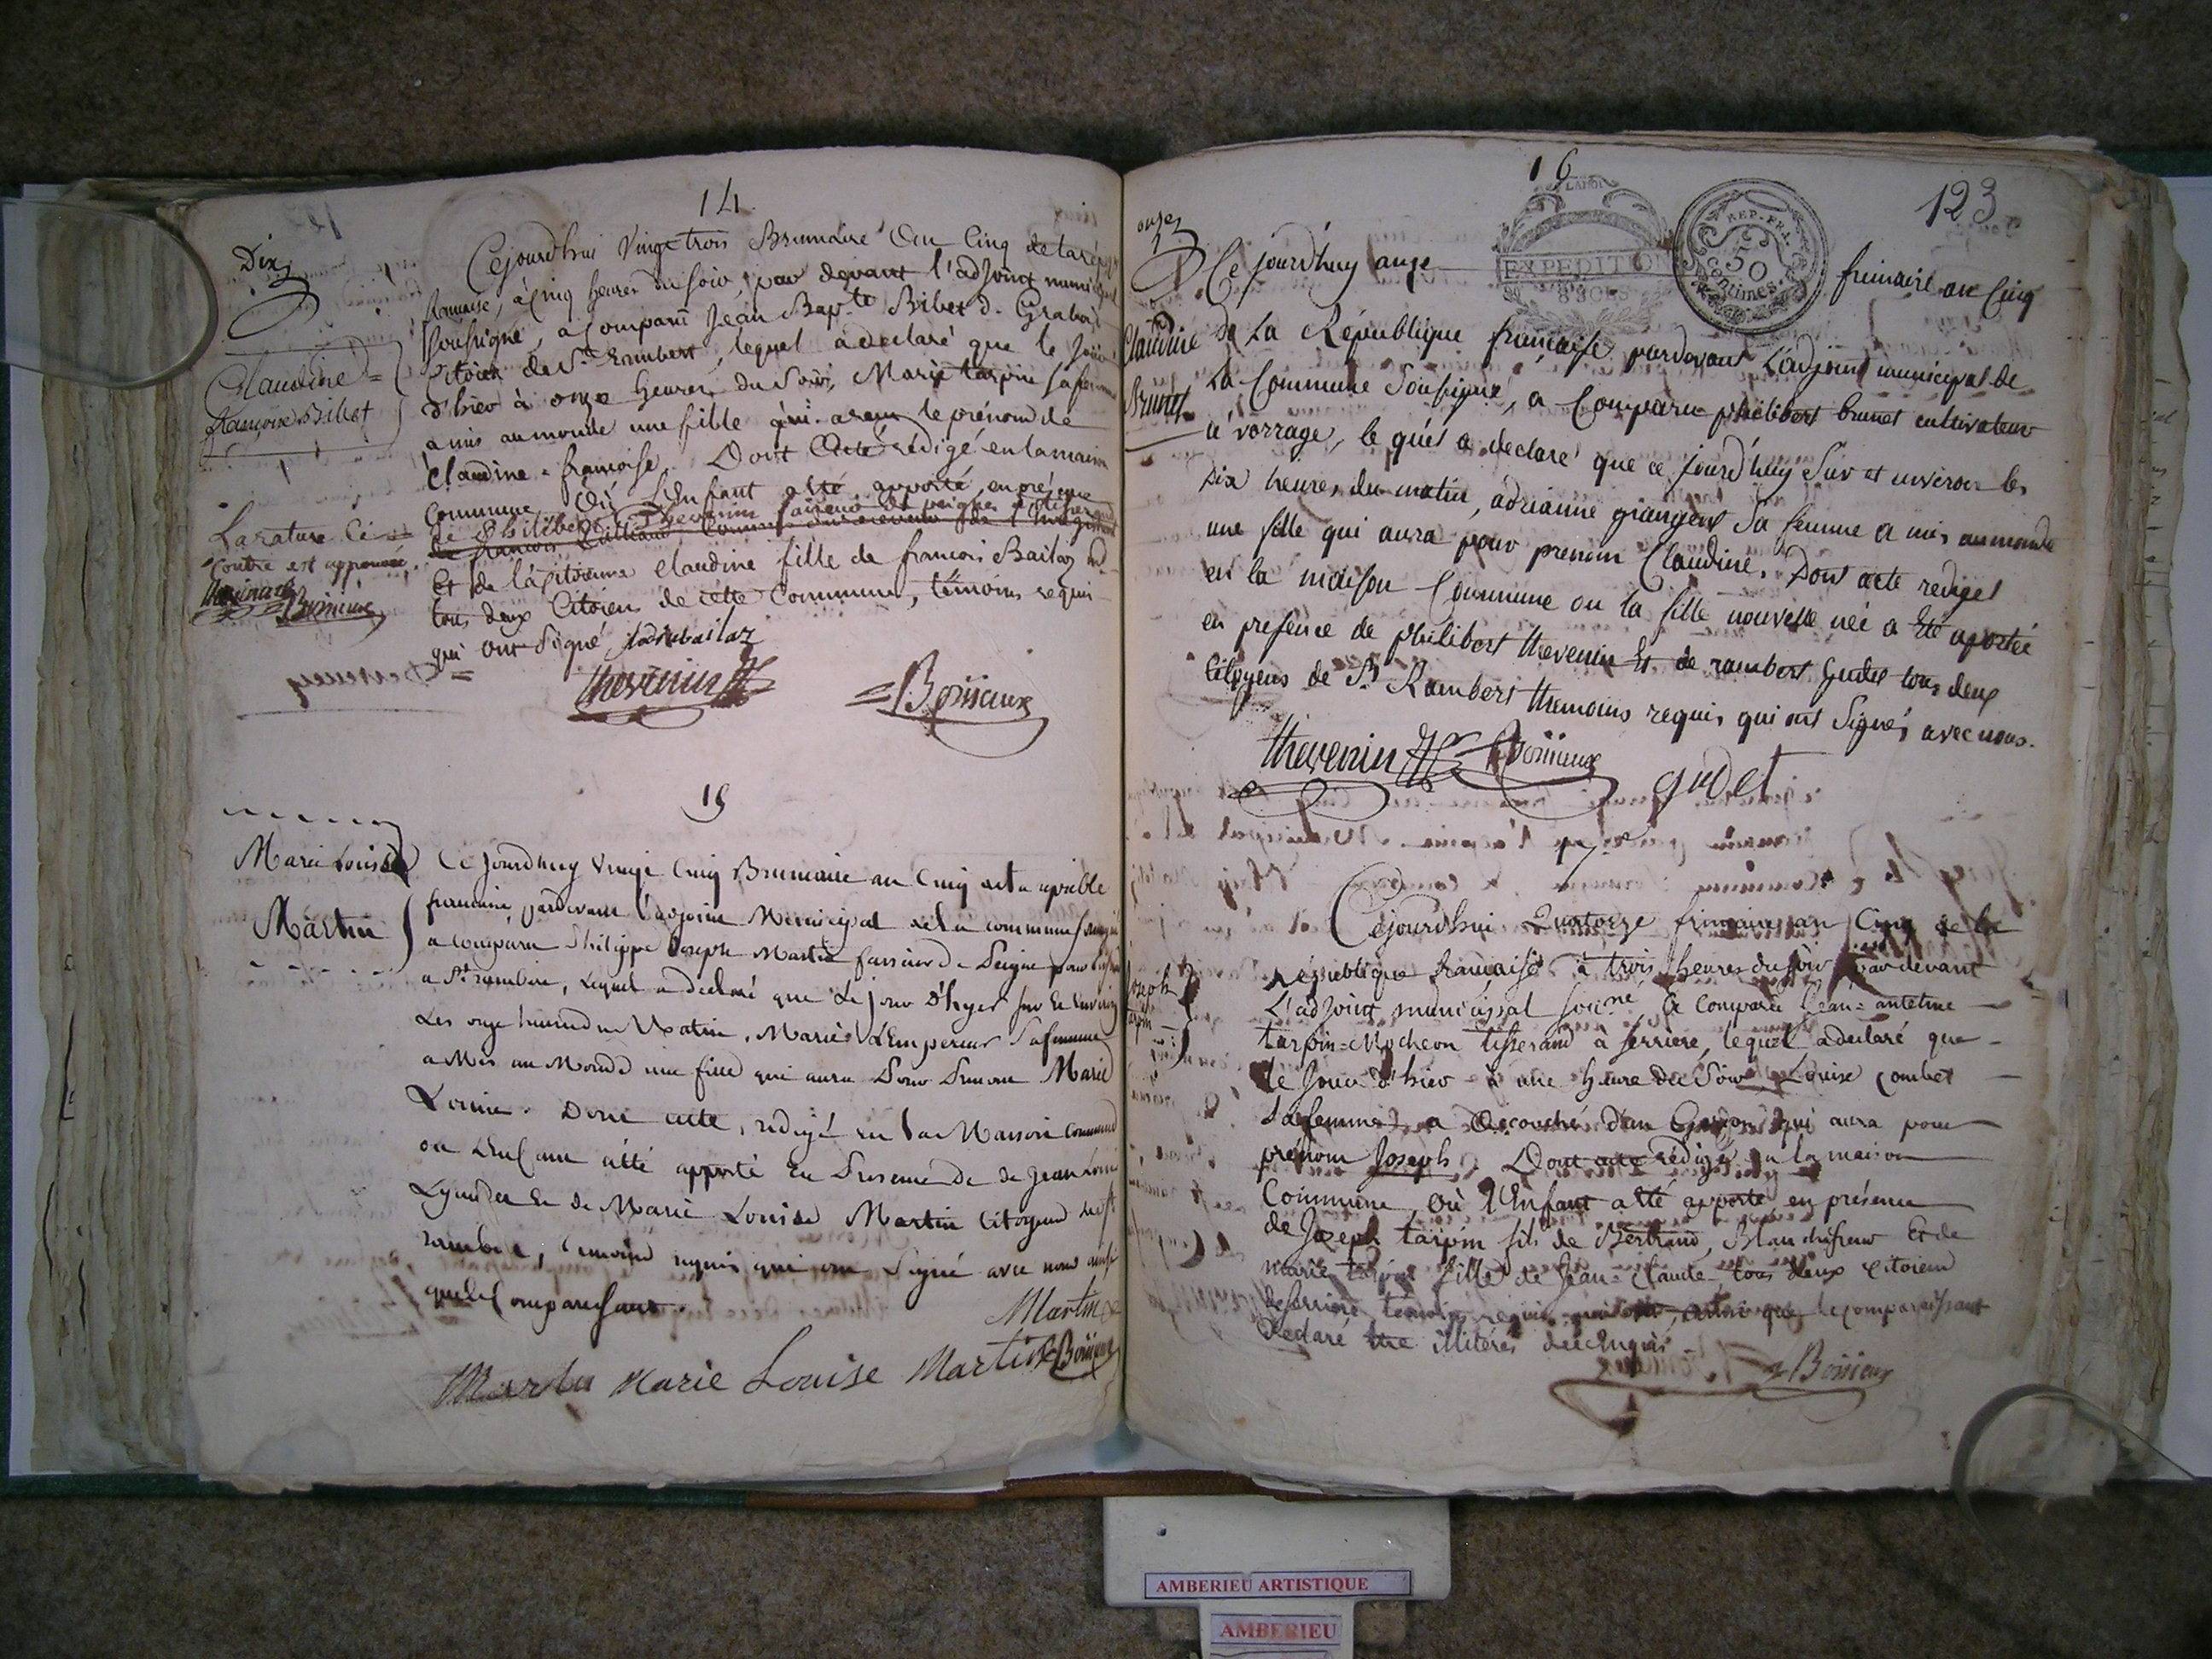 14
Dix
Claudine =
françoise Bibet
Cejourdhui Vingt trois Brumaire an Cinq de la rép
française, à Cinq heures du soir, par devant l'adjoint munici
soussigné, a comparu Jean Bap.te Bibet d.
Citoien de St Rambert, lequel a declaré que le jour
d'hier à onze heures du soir, Marie tarpin sa femme
a mis au monde une fille qui aura le prénom de
Claudine = françoise. Dont Acte rédigé en la maison
Commune, Où L'Enfant a été apporté, en présence
de Philibert Thevenin faiseur de peignes
de françois
Et de la citoienne Claudine fille de francois Bailaz
tous deux Citoiens de cette Commune, témoins requis
qui ont Signé
La rature Ci =
contre est approuvée
thevenin
= Boissieux
thevenin
= Boissieux
15
Marie Louise
Martin
Ce jourdhuy Vingt Cinq Brumaire an Cinq de la republe
francaise, pardevant l'adjoint Municipal de la commune
a comparu Philippe Joseph Martin faiseur de Peigne pour
a St rambert, Lequel a declaré que Le jour d'hyer sur Les environ
Les onze heures du Matin, Marie LEmpereur Sa femme
a Mis au Monde une fille qui aura Pour Prenom Marie
Louise. Dont acte, redigé en La Maison Commune
ou LEnfant a été apporté En Presence de Jean Louis
et de Marie Louise Martin Citoyens de St
rambert, temoins requis qui ont Signé avec nous ainsi
que le Comparaissant.
Martin
Marie Louise Martin
Boissieux
16
123
EXPEDITION
REP. FRA.
50
Centimes.
onze
Claudine
Brunet
Ce jourd'huy onze frimaire an Cinq
de La République française pardevant L'adjoint municipal de
La Commune Soussigné, a Comparu philibert brunet cultivateur
a vorrage, le quel a declaré que ce jourd'huy Sur et environ les
Dix heures du matin, adrianne grangent Sa femme a mis au monde
une fille qui aura pour prenom Claudine. Dont acte rediget
en la maison Commune ou la fille nouvelle née a Eté aportée
en presence de philibert thevenin Et de rambert gudet tous deux
Citoyens de St Rambert themoins requis qui ont Signés avec nous.
thevenin
= Boissieux
gudet
17
Joseph
tarpin
Cejourdhui Quatorze frimaire an Cinq de la
république française à trois heures du soir par devant
L'adjoint municipal sou.né, A comparu Jean = antelme
tarpin = Mocheon tisserand à serriere, lequel a declaré que
le jour d'hier à une heure du soir Louise combet
sa femme a Accouché d'un Garçon qui aura pour
prénom Joseph. Dont acte rédigé en la maison
Commune, où l'Enfant a été apporté, en présence
de Joseph tarpin fils de Bertrand, Blanchisseur Et de
marie tarpin fille de Jean = Claude tous deux Citoiens
de serriere témoins requis qui ont, ainsi que le comparaissant
Déclaré être illitérés de ce Enquis.
= Boissieux
AMBERIEU ARTISTIQUE
AMBERIEU